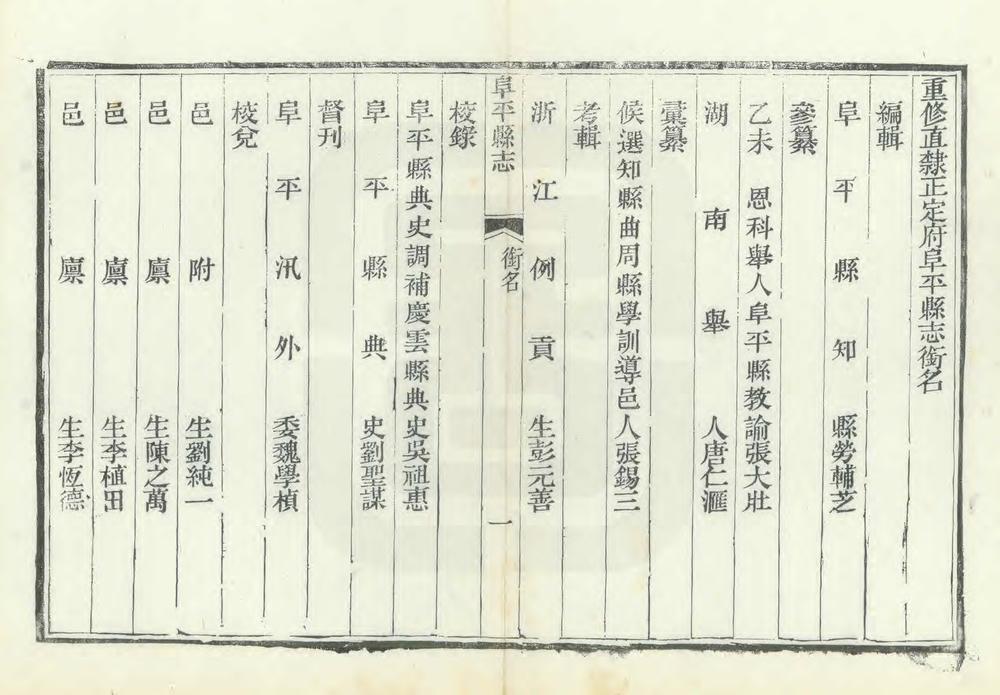 重修直隸正定府阜平縣志銜名
編輯
阜平縣知縣勞輔芝
參纂
乙未　恩科舉人阜平縣教諭張大壯
湖南舉人唐仁滙
彙纂
候選知縣曲周縣學訓導邑人張錫三
考輯
浙江例貢生彭元善
阜平縣志　銜名　一
校錄
阜平縣典史調補慶雲縣典史吳祖惠
阜平縣典史劉聖謀
督刊
阜平汛外委魏學楨
校兌
邑附生劉純一
邑廩生陳之萬
邑廩生李植田
邑廩生李恆德